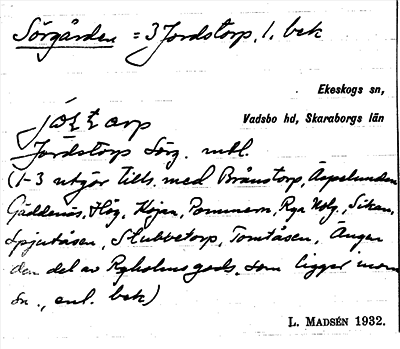 Sörgården = 3 Jordstorp, 1. bek
Ekeskogs sn,
Vadsbo hd, Skaraborgs län
Jordstorp Sörg. mbl.
(1-3 utgör tills. med Brånstorp, Äspelunden
Gäddenäs, Hög, Kojan, Pommern, Rya Kolg, Sikan,
Spjutåsen, Stubbetorp, Tomtåsen, Ängar
den del av Ryholms gods, som ligger inom
sn., enl. bek)
L. MADSÉN 1932.